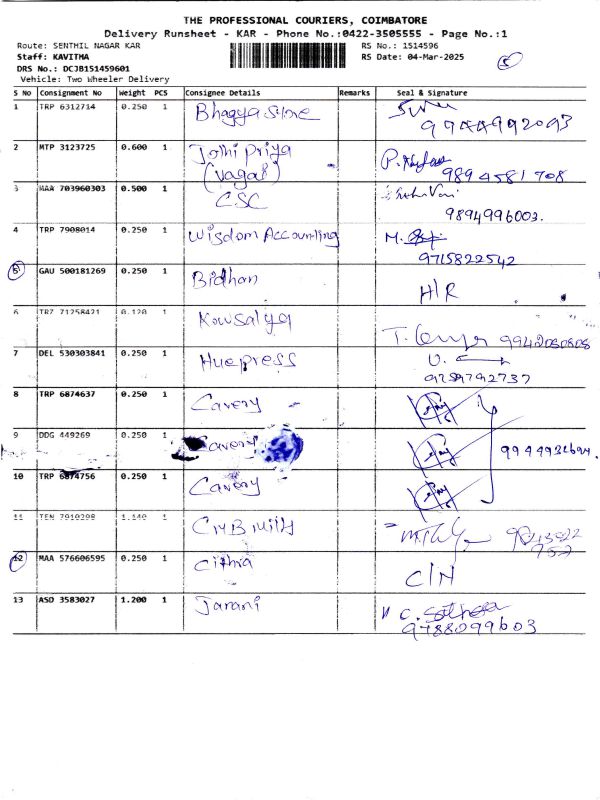 THE PROFESSIONAL COURIERS, COIMBATORE
Delivery Runsheet - KAR - Phone No.:0422-3505555 - Page No.:1
Route: SENTHIL NAGAR KAR RS No.: 1514596
Staff: KAVITHA RS Date: 04-Mar-2025
DRS No.: DCJB151459601
Vehicle: Two Wheeler Delivery
S No Consignment No Weight PCS Consignee Details Remarks Seal & Signature
1 TRP 6312714 0.250 1 Bhagya Stone
9944992093
2 MTP 3123725 0.600 1 Jothi Priya
(Vagai) 9894581708
3 MAA 703960303 0.500 1 CSC
9894996003.
4 TRP 7908014 0.250 1 Wisdom Accounting M.
9715822542
5 GAU 500181269 0.250 1 Bidhan H/R
6 1 Kowsalya T.
7 DEL 530303841 0.250 1 Huepress U.
9789792737
8 TRP 6874637 0.250 1 Cavery
9 DDG 449269 0.250 1 Cavery
10 TRP 6874756 0.250 1 Cavery
11 1 
12 MAA 576606595 0.250 1 Cithra C/N
13 ASD 3583027 1.200 1 Jarani C.
9788099603